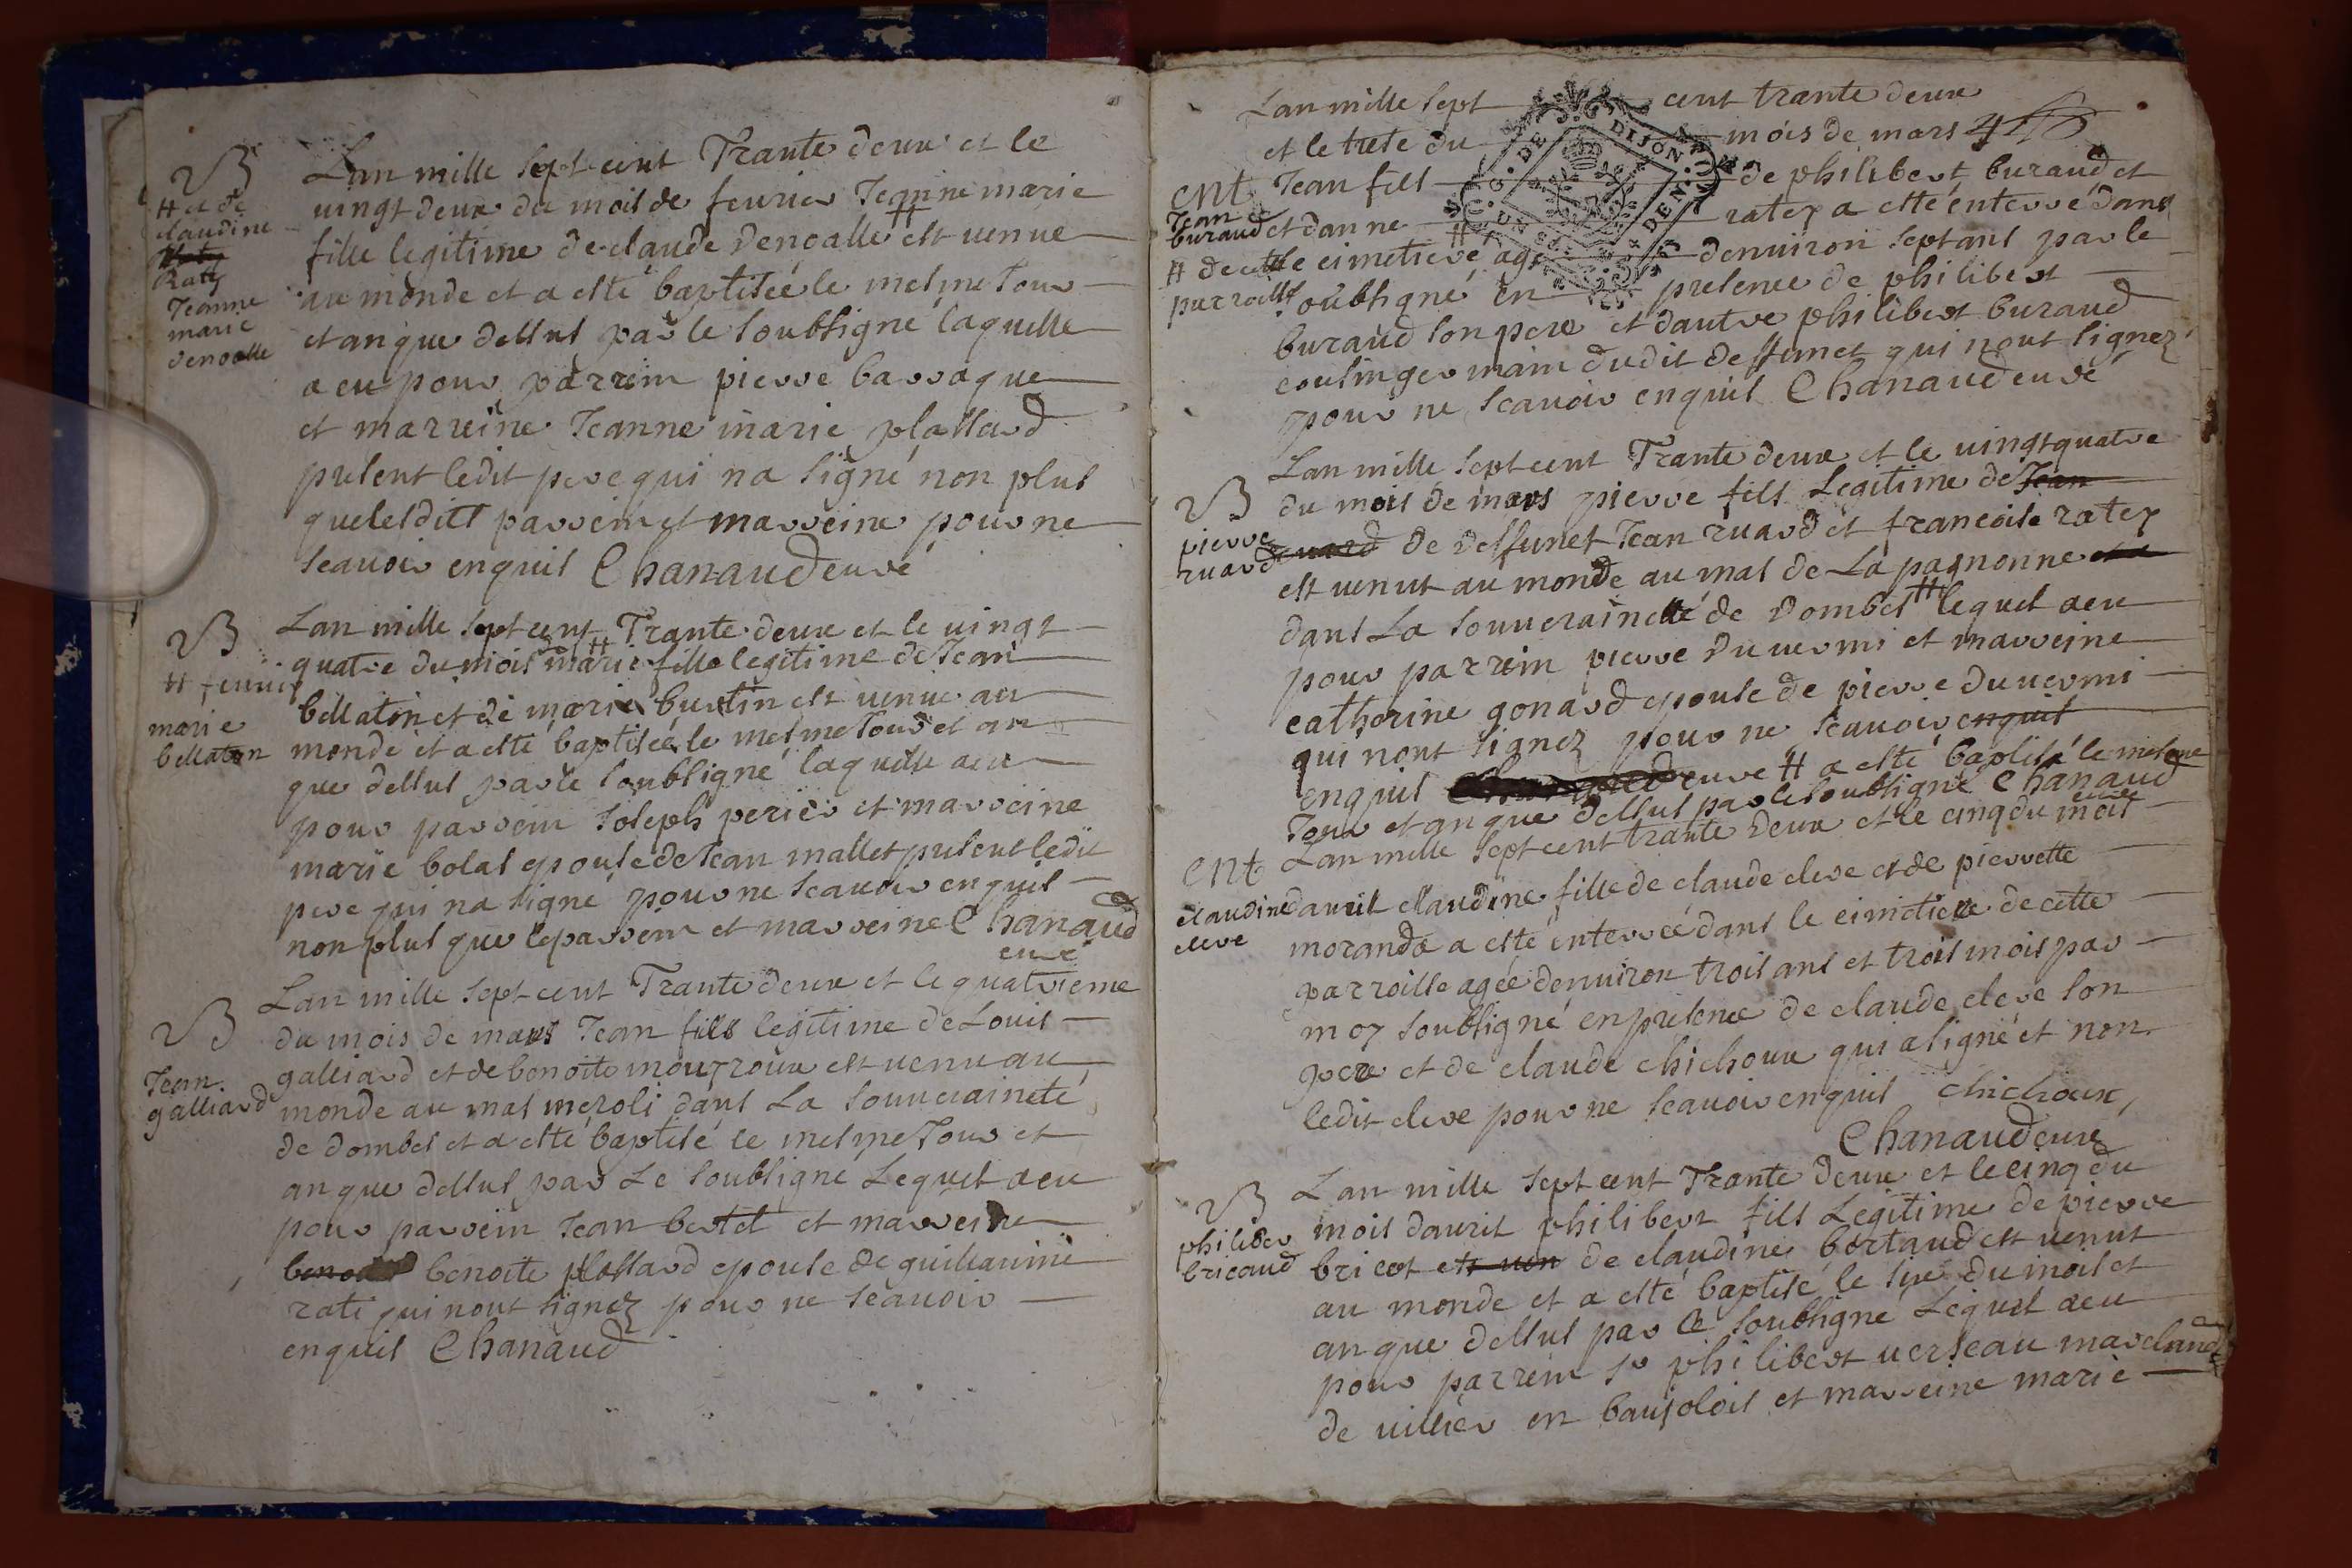 B
# et de
claudine
Raty
Jeanne
marie
denoalle
Lan mille sept cent Trante deux et le
uingt deux du mois de feurier Jeanne marie
fille legitime de claude denoalle # est uenue
au monde et a esté baptiseé le mesme Jour
et an que dessus par le soubsigné laquelle
a eu pour parrein pierre barraque
et marreine Jeanne marie plassard
present ledit pere qui na signé non plus
que lesdits parrein et marreine pour ne
scauoir enquis Chanaud curé
B
# feurier
marie
bellaton
Lan mille sept cent Trante deux et le uingt
quatre du mois # marie fille legitime de Jean
bellaton et de marie burtin est uenue au
monde et a esté baptiseé le mesme Jour et an
que dessus par le soubsigné laquelle a eu
pour parrein Joseph perier et marreine
marie bolas epouse de Jean mallet present ledit
pere qui na signé pour ne scauoir enquis
non plus que le parrein et marreine Chanaud
curé
B
Jean
galliard
Lan mille sept cent Trante deux et le quatrieme
du mois de mars Jean fils legitime de Louis
galliard et de benoite mouzroux est uenu au
monde au mas meroli dans La souueraineté
de dombes et a esté baptisé le mesme Jour et
an que dessus par Le soubsigné Lequel a eu
pour parrein Jean bertet et marreine
benoite plassard epouse de guillaume
rati qui nont signez pour ne scauoir
enquis Chanaud
Lan mille sept cent trante deux
et le trese du mois de mars
ent
Jean
buraud
# de cette
parroisse
Jean fils de philibert buraud et
et danne ratez a esté enterré dans
le cimetiere # agé denuiron sept ans par le
soubsigné en presence de philibert
buraud son pere et dautre philibert buraud
cousin germain dudit deffunct qui nont signez
pour ne scauoir enquis Chanaud curé
B
pierre
ruard
Lan mille sept cent Trante deux et le uingt quatre
du mois de mars pierre fils Legitime de Jean
ruard de deffunct Jean ruard et francoise ratez
est uenut au monde au mas de La pagnonne et a
dans La souueraineté de Dombes # lequel a eu
pour parrein pierre duuermi et marreine
catherine gonard epouse de pierre duuermi
qui nont signez pour ne scauoir enquis
enquis curé # a esté baptisé le mesme
Jour et an que dessus par le soubsigné Chanaud
curé
ent
claudine
clere
Lan mille sept cent trante deux et le cinq du mois
dauril claudine fille de claude clere et de pierrette
morande a esté enterreé dans le cimetiere de cette
parroisse ageé denuiron trois ans et trois mois par
moy soubsigné en presence de claude clere son
pere et de claude chichoux qui a signé et non
ledit clere pour ne scauoir enquis chichoux
Chanaud curé
B
philiber
bricaud
Lan mille sept cent Trante deux et le cinq du
mois dauril philibert fils Legitime de pierre
bricot de claudine bertaud est uenut
au monde et a esté baptisé le six du mois et
an que dessus par le soubsigné Lequel a eu
pour parrein sr philibert uerseau marchand
de uillier en baujolois et marreine marie
DE DIJON